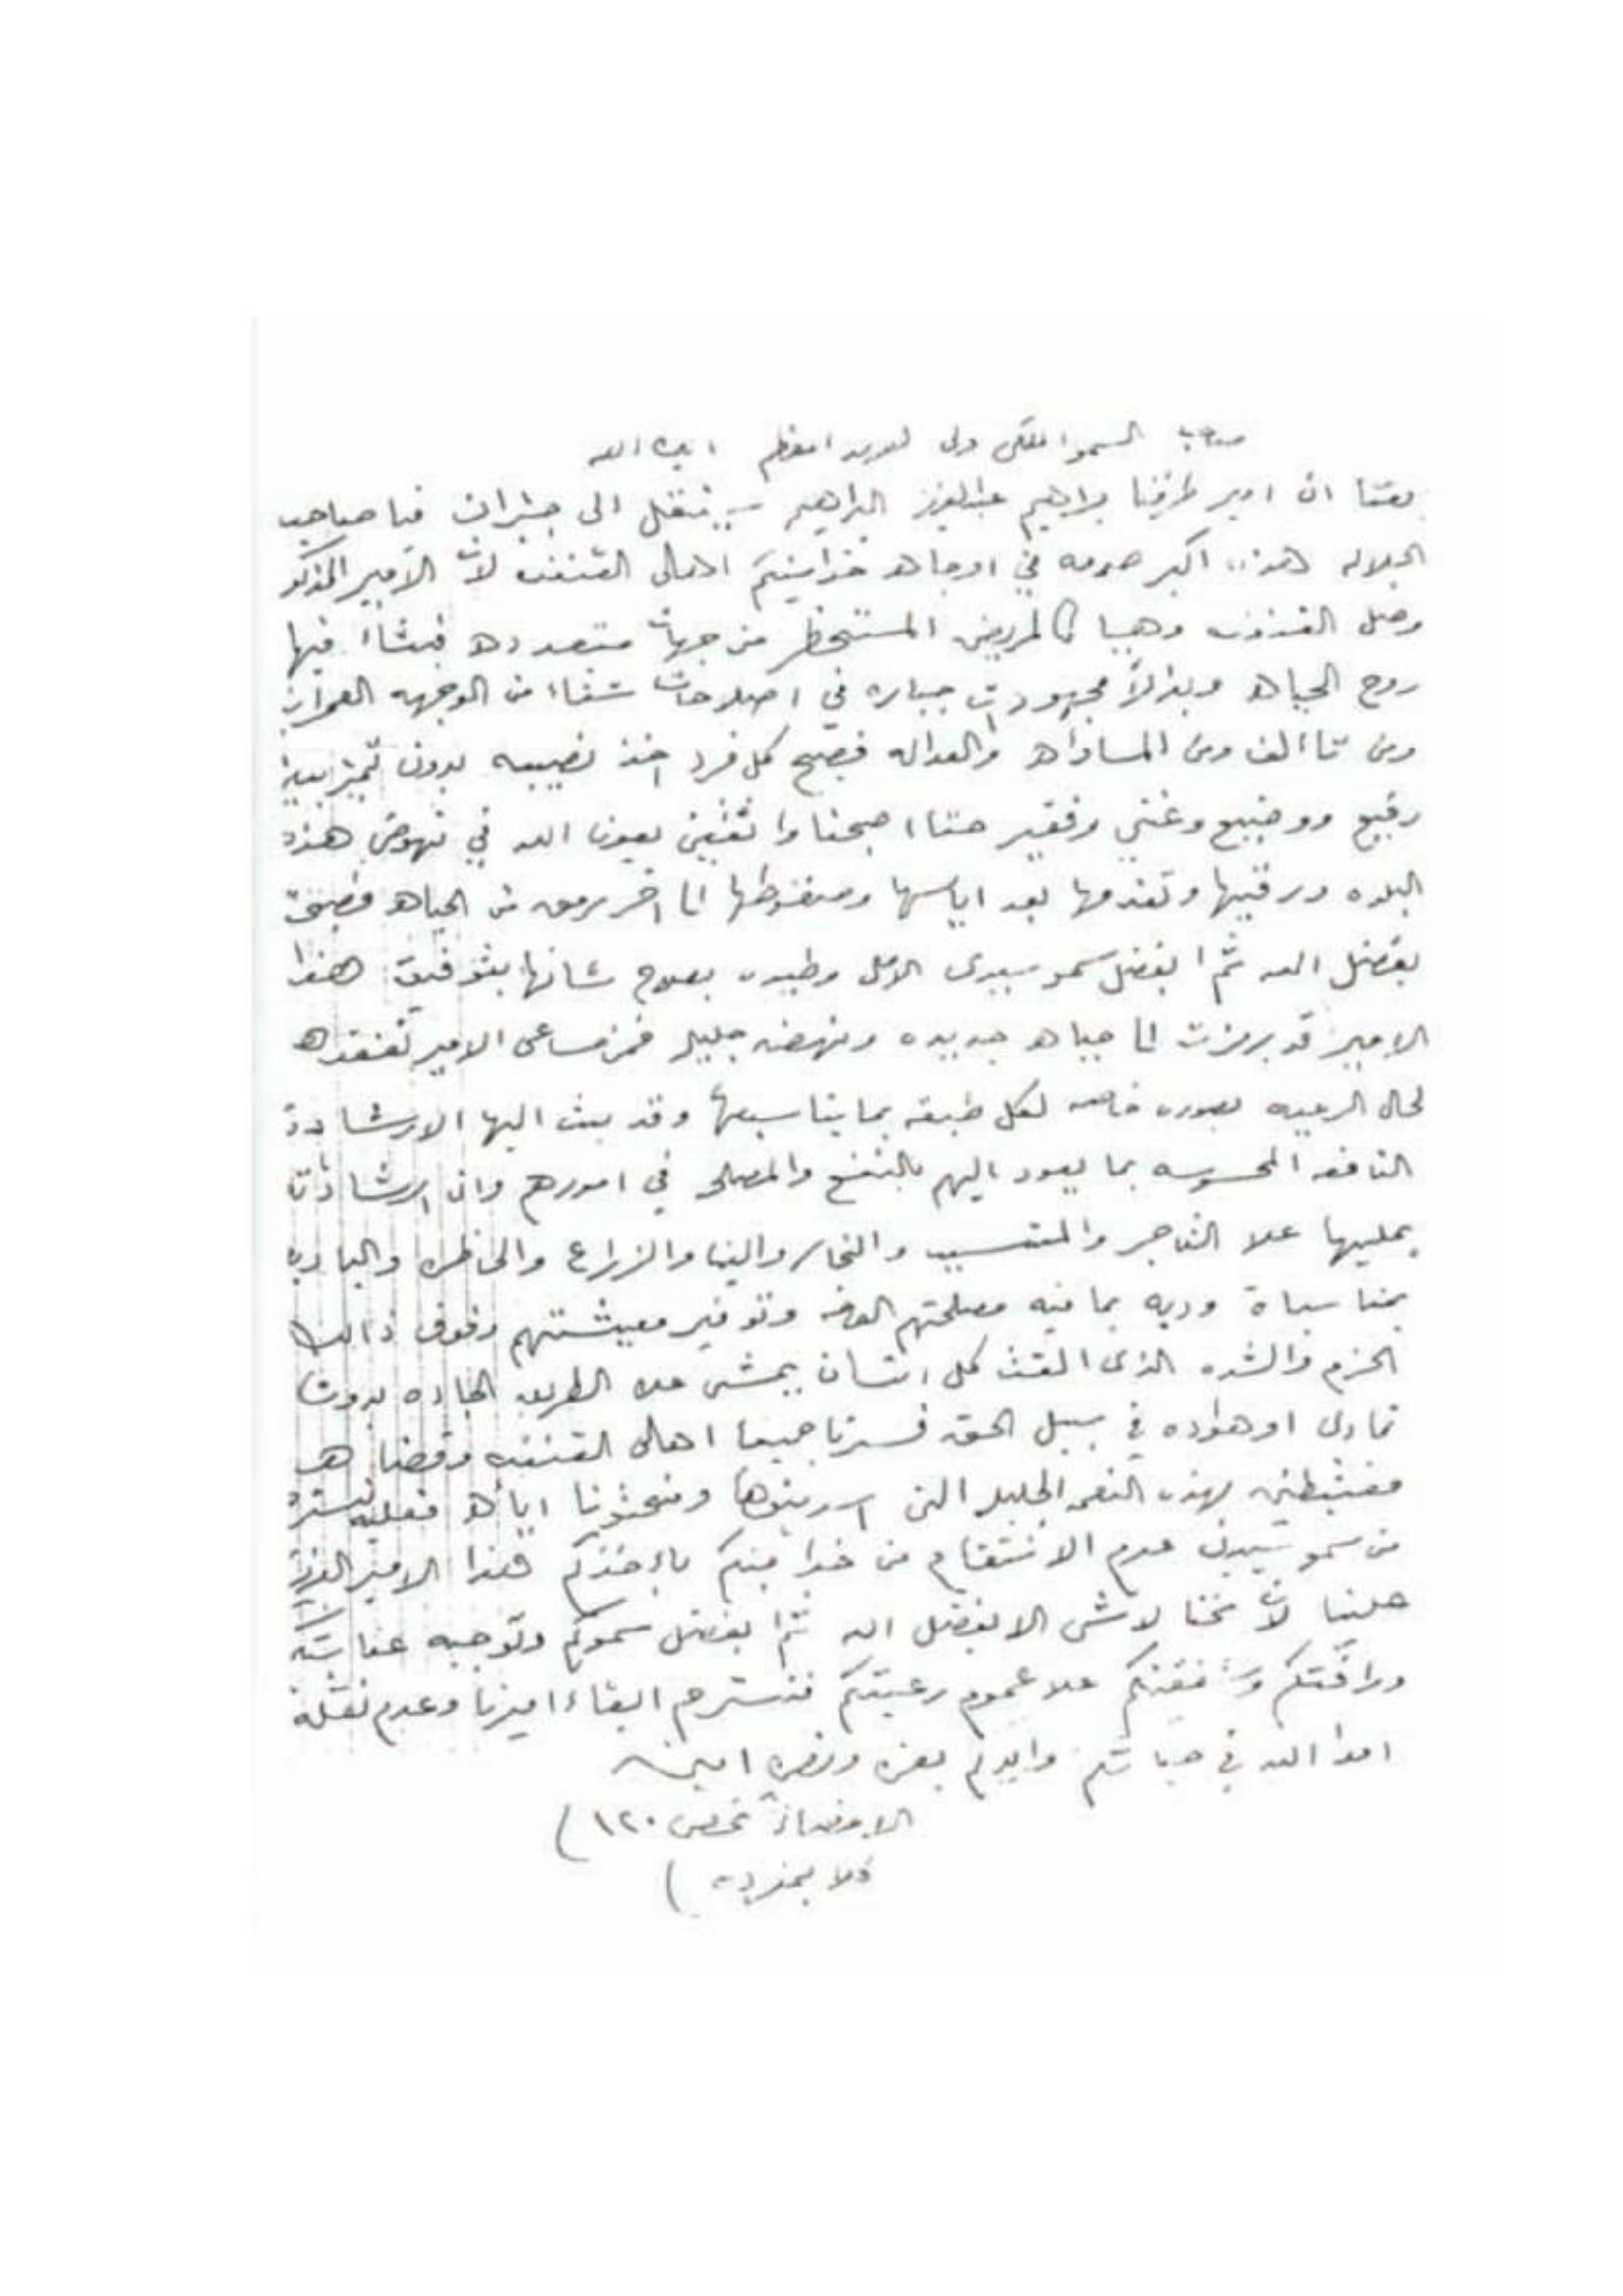 صاحب السمو الملكي ولي العهد المعظم ايده الله
بلغنا ان امير طرفنا براهيم عبدالعزيز البراهيم سينتقل الى جيزان فيا صاحب
الجلاله هذه اكبر صدمه في ادجاه خدامينكم اهالي القنفذه لان الامير المذكور
وصل القنفذه وهيا كالمريض المستحظر من جهات متعدده فبشاء فيها
روح الحياه وبذالاً مجهودات جباره في اصلاحات شتاء من الوجهه العمران
ومن تاالف ومن المساواه والعداله فصبح كل فرد اخذ نصيبه بدون تميز بين
رفيع ووضيع وغني وفقير حتا اصبحنا واثقين بعون الله في نهوض هذه
البلده ورقيها وتقدمها بعد اياسها الا اخر رمق من الحياه فصبحت
بفضل الله ثم ابفضل سمو سيدي الامل وطيد بصلاح شانها بتوفيق هذا
الامير قد برزت الا حياه جديده ونهضه جليله فمن مساعي الامير تفقده
لحال الرعيه بصوره خاصه لكل طبقه بما يناسبها وقد بث اليها الارشادة
النافعه المحسوسه بما يعود اليهم بالنفع والمصلحه في امورهم وان ارشاداتا
يمليها علا التاجر والمتسبب والنجار والبنا والزراع والحاظره والباديه
بمناسباة وديه بما فيه مصلحتهم العامه وتوفير معيشتهم وفوق ذالك
الحزم والشده الذى القت كل انسان يمشى علا الطريق الجاده بدون
تمادى او هواده في سبيل الحق فسرنا جميعا اهالى القنفذه وقضاها
مغتبطين بهذه النعمه الجليله التى اسديتوها ومنحتونا اياه فعليه نسترحم
من سمو سيدى عدم الانتقام من خدامينكم باءخذكم هذا الامير العزيز
علينا لان نحنا لاشى الا بفضل الله ثم بفضل سموكم وتوجيه عنايتكم
ورافتكم وشفقتكم علا عموم رعيتكم فنسترحم ابقاء اميرنا وعدم نقله
امدا الله في حياتكم وايدكم بعزه ونصره امين
الامضاء شخص ١٢٠)
كلا بمفرده )